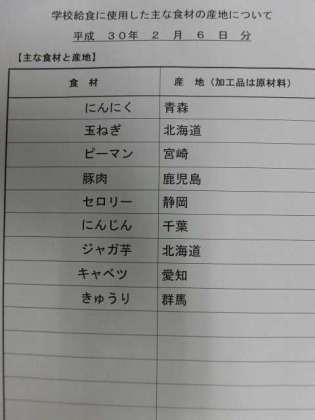 学校給食に使用した主な食材の産地について
平成 30年 2 月 6 日 分
【主な食材と産地】
食 材 産 地（加工品は原材料）
にんにく 青森
玉ねぎ 北海道
ピーマン 宮崎
豚肉 鹿児島
セロリー 静岡
にんじん 千葉
ジャガ芋 北海道
キャベツ 愛知
きゅうり 群馬